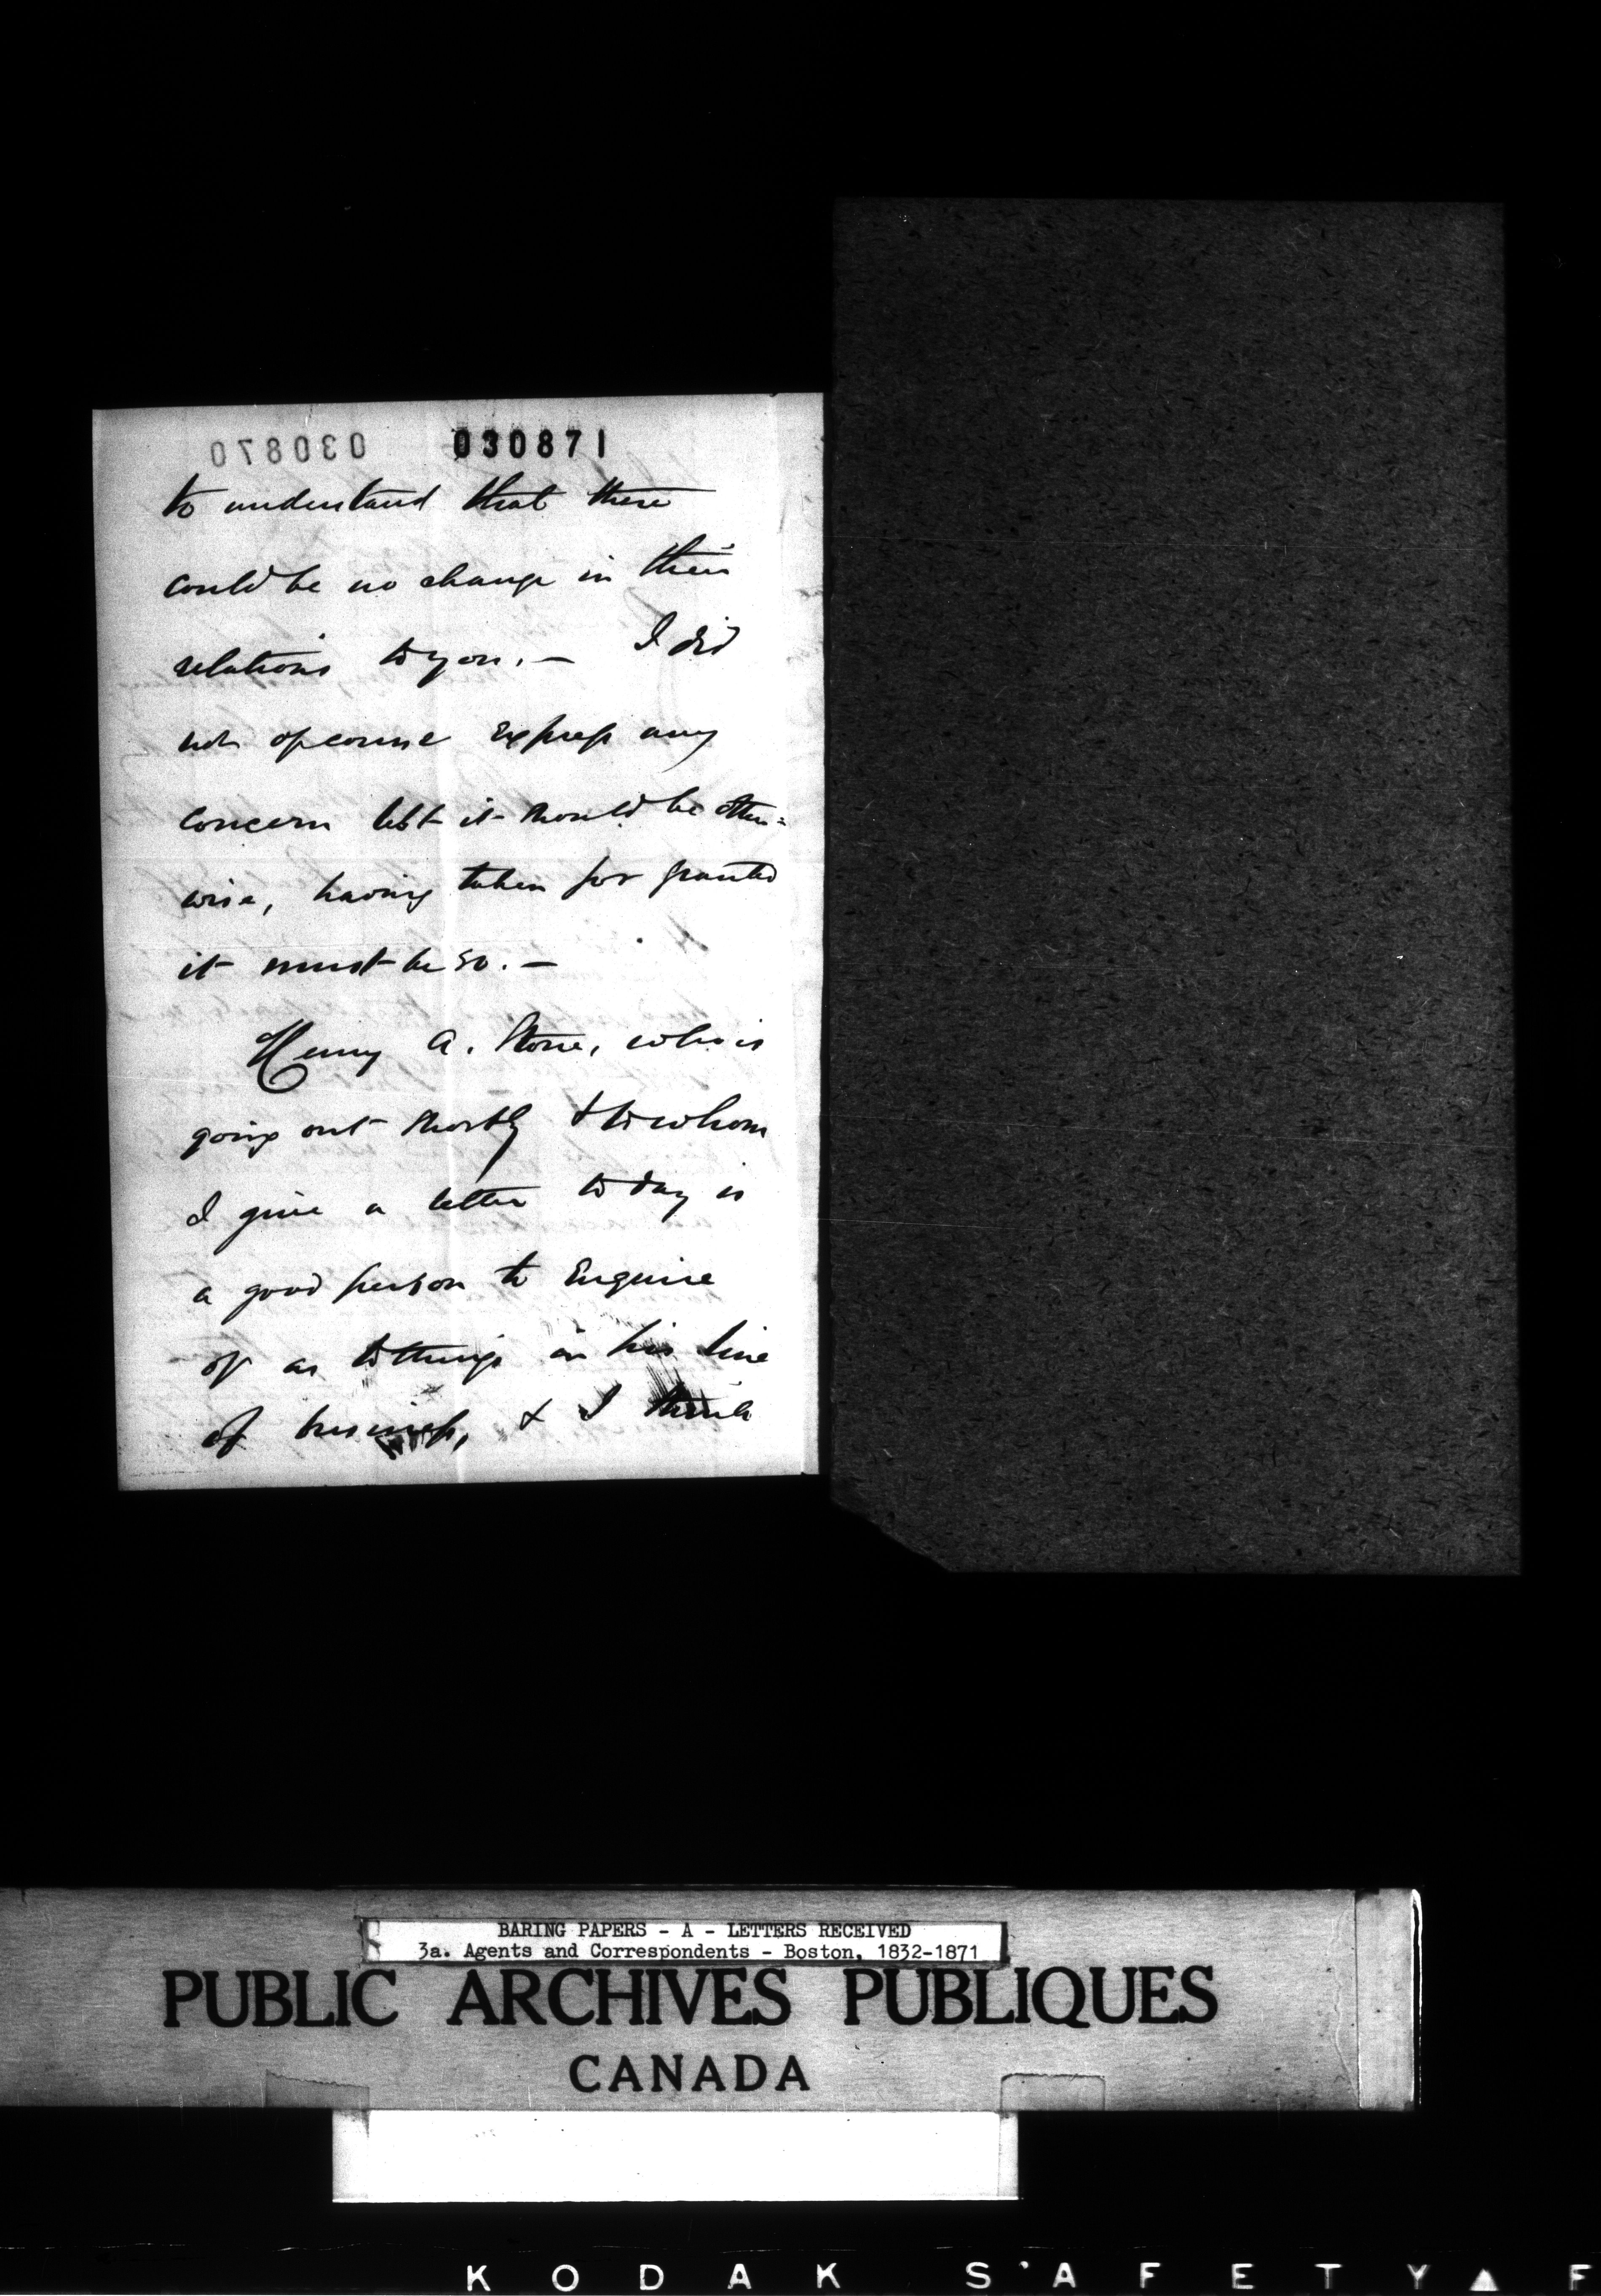 030870 030871
to understand that there
could be no change in their
relations to you. – I did
not of course express any
concern lest it should be other=
wise, having taken for granted
it must be so. –
Henry A. Stone, who is
going out shortly & to whom
I give a letter to day is
a good person to Enquire
of as to things in his line
of business, & I think
BARING PAPERS - A - LETTERS RECEIVED
3a. Agents and Correspondents - Boston, 1832-1871
PUBLIC ARCHIVES PUBLIQUES
CANADA
KODAK S'AFETY▲F